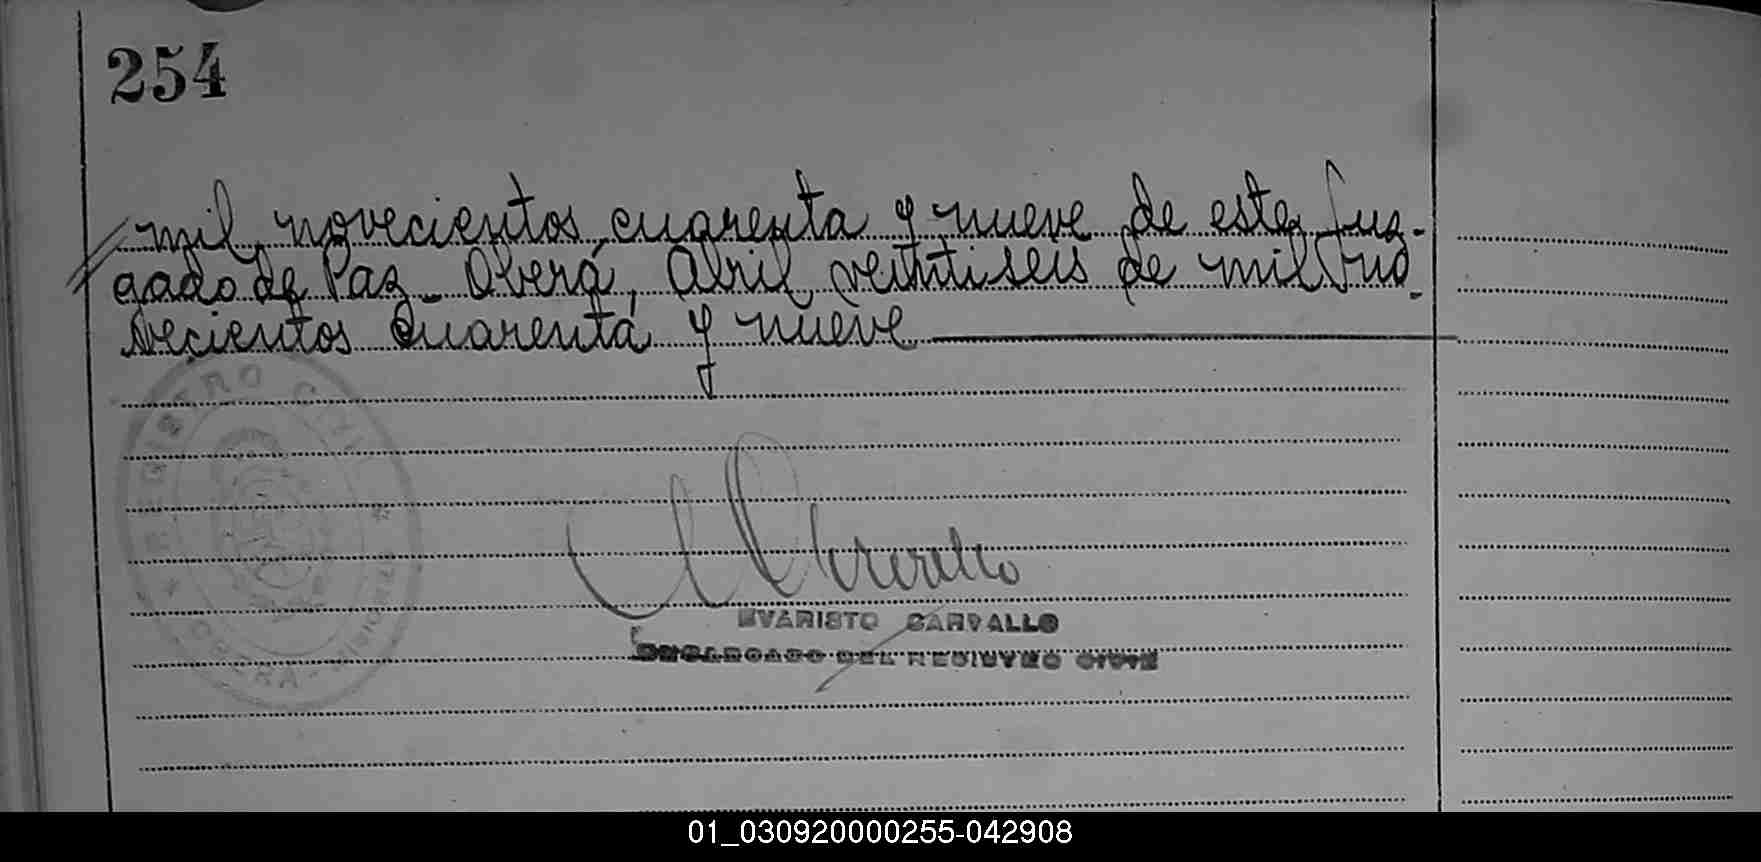 254
mil novecientos cuarenta y nueve de este Juz-
gado de Paz_ Oberá, Abril veintiseis de mil no_
vecientos cuarenta y nueve
REGISTRO CIVIL
OBERA - MISIONES
EVARISTO CARVALLO
ENCARGADO DEL REGISTRO CIVIL
01_030920000255-042908